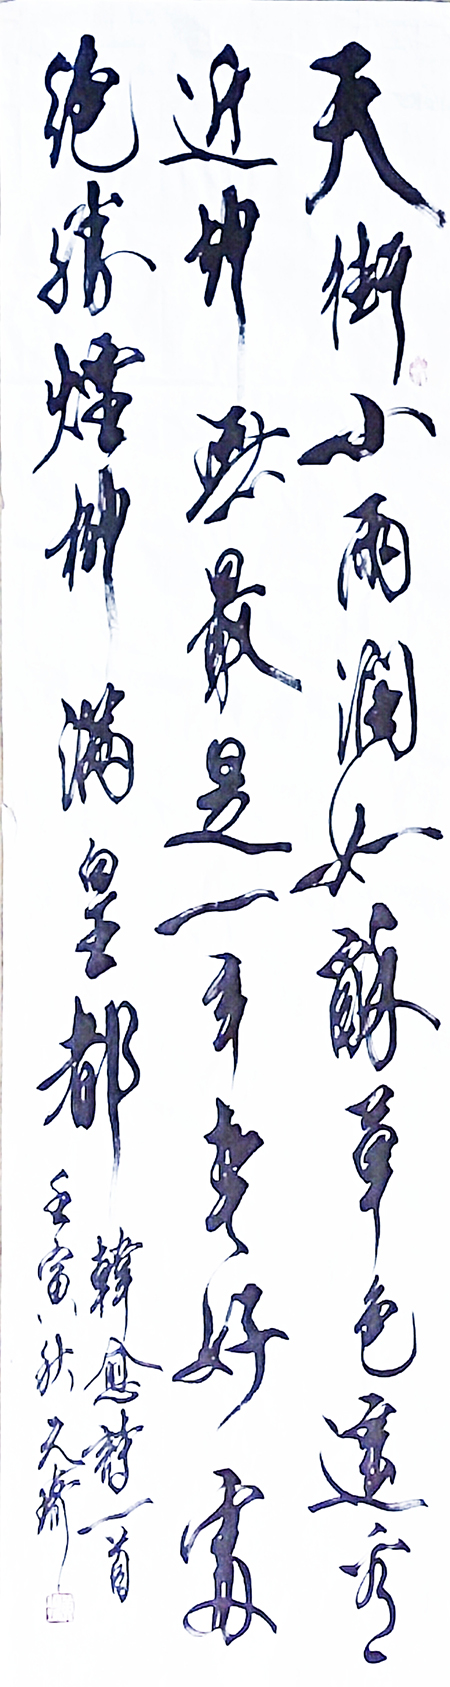 天街小雨润如酥草色遥看
近却无最是一年春好处
绝胜烟柳满皇都
韩愈诗一首
壬寅秋元